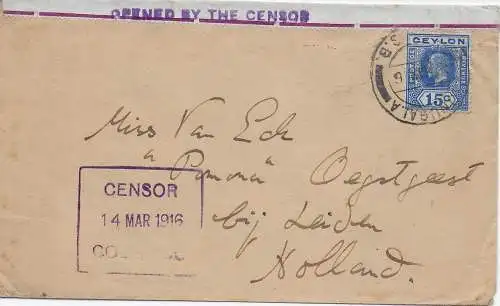 OPENED BY THE CENSOR
CEYLON
15c
Miss Van Eck
"Pomona"
Oegstgeest
bij Leiden
Holland.
CENSOR
14 MAR 1916